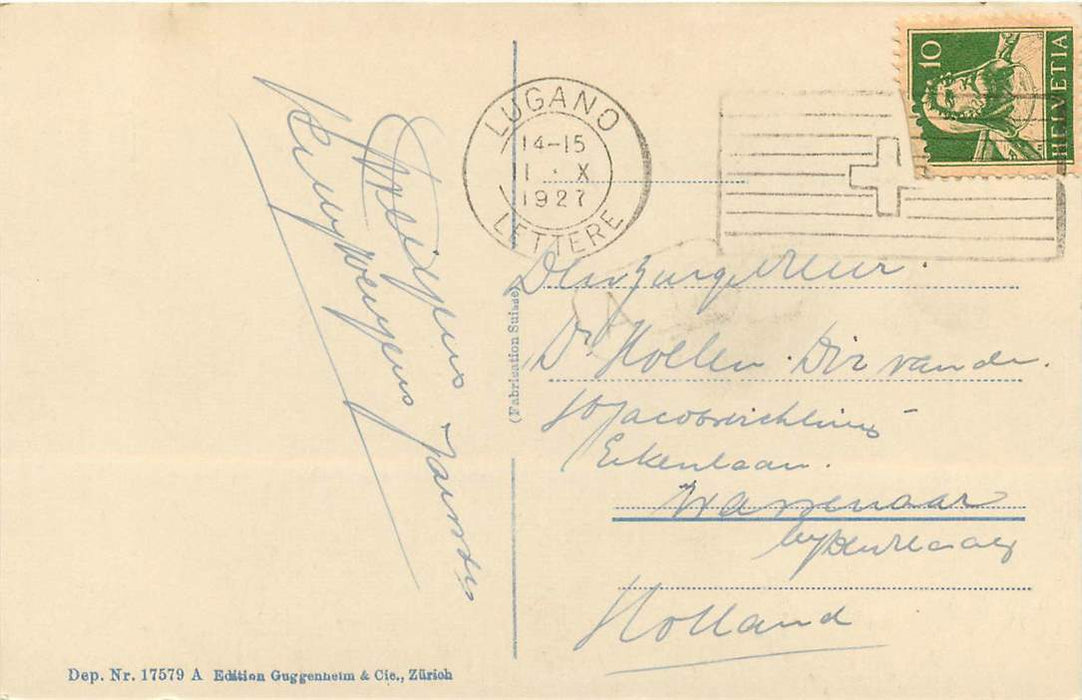 10
HELVETIA
LUGANO
14-15
11 · X
1927
LETTERE
(Fabrication Suisse)
Dr Hoelen. Dir van de
St Jacobsstichting
Eikenlaan.
Wassenaar
by Den Haag
Holland
Dep. Nr. 17579 A Edition Guggenheim & Cie., Zürich